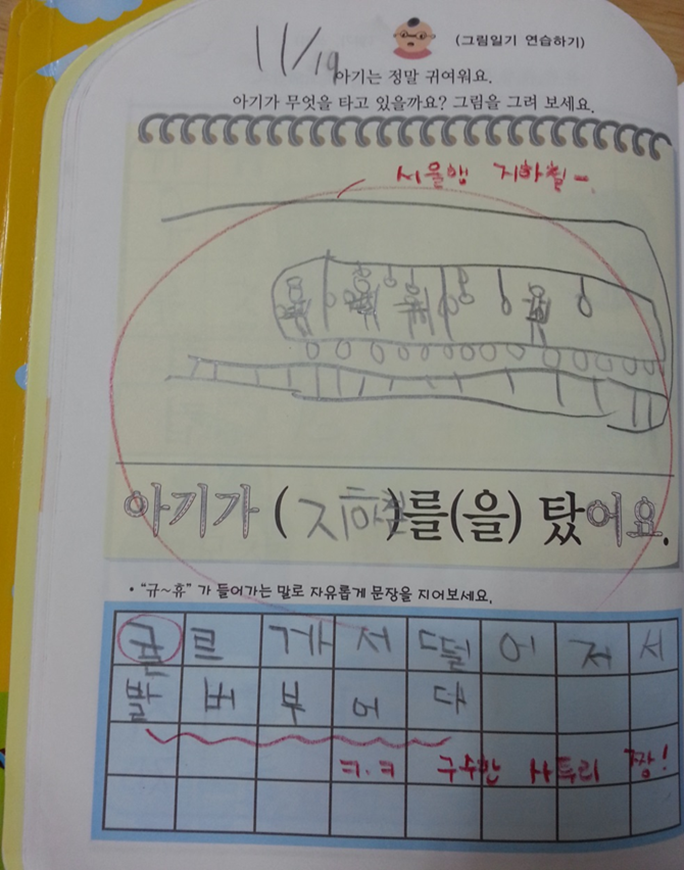 11/19
(그림일기 연습하기)
아기는 정말 귀여워요.
아기가 무엇을 타고 있을까요? 그림을 그려 보세요.
서울행 지하철~.
아기가 (지하철)를(을) 탔어요.
• "규~휴" 가 들어가는 말로 자유롭게 문장을 지어보세요.
귤 르 까 서 떨 어 저 서
발 버 부 어 다
ㅋ.ㅋ 구수한 사투리 짱!